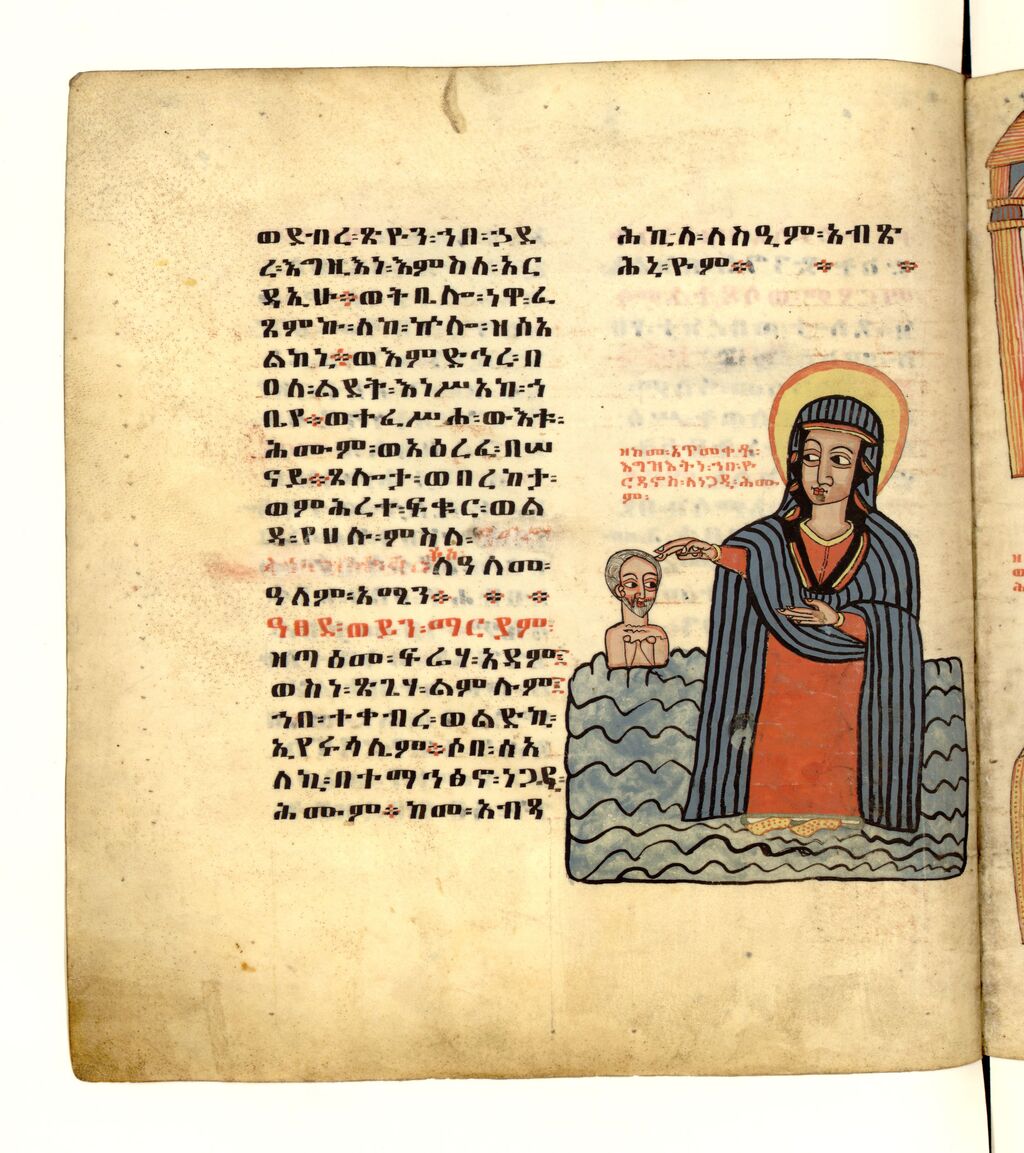 ወደብረ፡ጽዮን፡ኀበ፡ኃደ
ረ፡እግዚእነ፡እምስለ፡አር
ዳኢሁ፨ወትቢሎ፡ነዋ፡ፈ
ጸምኩ፡ስከ፡ኵሎ፡ዘሰአ
ልከነ፨ወእምድኅረ፡በ
ዐለ፡ልደት፡እነሥአከ፡ኀ
ቢየ፨ወተፈሥሐ፡ውእቱ፡
ሕሙም፡ወአዕረፈ፡በሠ
ናይ፨ጸሎታ፡ወበረከታ፡
ወምሕረተ፡ፍቁር፡ወል
ዳ፡የሀሉ፡ምስለ፡
ለዓለመ፡
ዓለም፡አሜን፨ ፨ ፨
ዓፀደ፡ወይን፡ማርያም፡
ዝጣዕመ፡ፍሬሃ፡አዳም፤
ወስነ፡ጽጌሃ፡ልምሉም፤
ኀበ፡ተቀብረ፡ወልድኪ፡
ኢየሩሳሌም፨ሶበ፡ሰአ
ለኪ፡በተማኅፅኖ፡ነጋዲ፡
ሕሙም፨ከመ፡አብዳ
ሕኪሰ፡ለስዒም፡አብጽ
ሕኒ፡ዮም፨ ፨ ፨
ዘከመ፡አጥመቀቶ፡
እግዝእትነ፡ኀበ፡ዮ
ርዳኖስ፡ለነጋዲ፡ሕሙ
ም፡